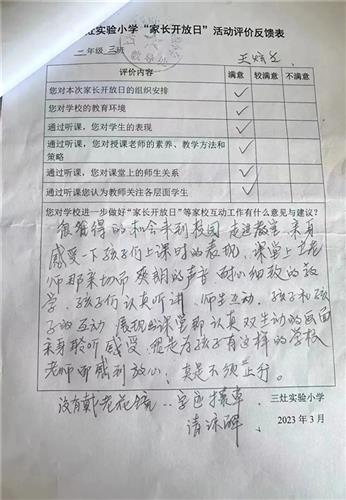 三灶实验小学“家长开放日”活动评价反馈表
二年级 三班
评价内容 满意 较满意 不满意
您对本次家长开放日的组织安排 ✓
您对学校的教育环境 ✓
通过听课，您对学生的表现 ✓
通过听课，您对授课老师的素养、教学方法和
策略 ✓
通过听课，您对课堂上的师生关系 ✓
通过听课您认为教师关注各层面学生 ✓
您对学校进一步做好“家长开放日”等家校互动工作有什么意见与建议？
很难得的和今来到校园 走进教室 亲身
感受一下孩子们上课时的表现，课堂上老
师那亲切而爽朗的声音 耐心细致的教
学，孩子们认真听讲，师生互动，孩子和孩
子的互动 展现出课堂那认真又生动的画面
亲身聆听感受，很是为孩子有这样的学校
老师而感到放心，真是不须此行。
没有戴老花镜，字迹
请谅解
三灶实验小学
2023 年 3 月